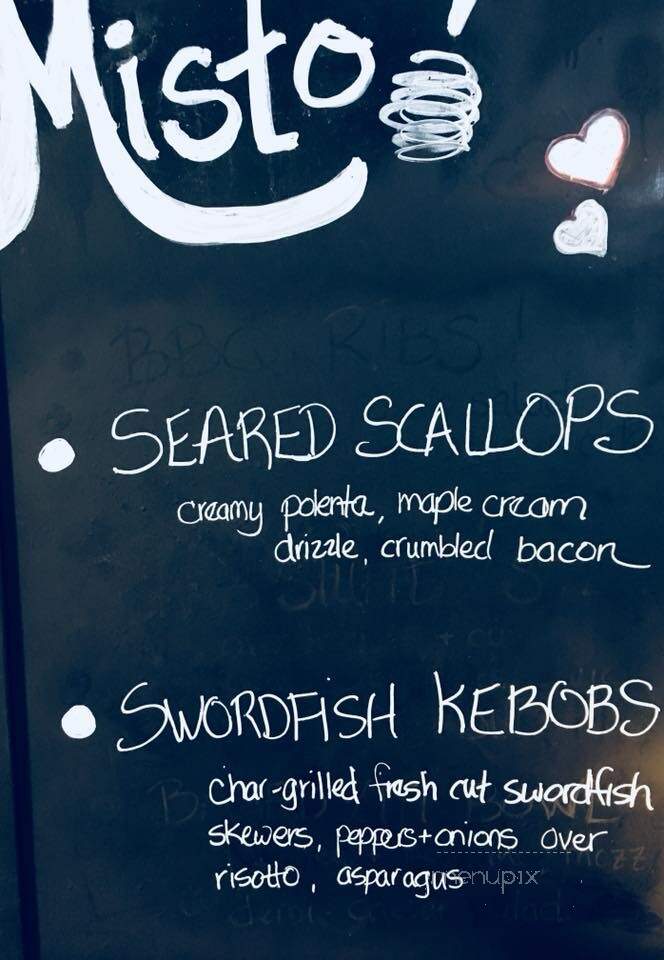 Misto!
BBQ RIBS!
• SEARED SCALLOPS
creamy polenta, maple cream
drizzle, crumbled bacon
• SWORDFISH KEBOBS
char-grilled fresh cut swordfish
skewers, peppers + onions over
risotto, asparagus
menupix